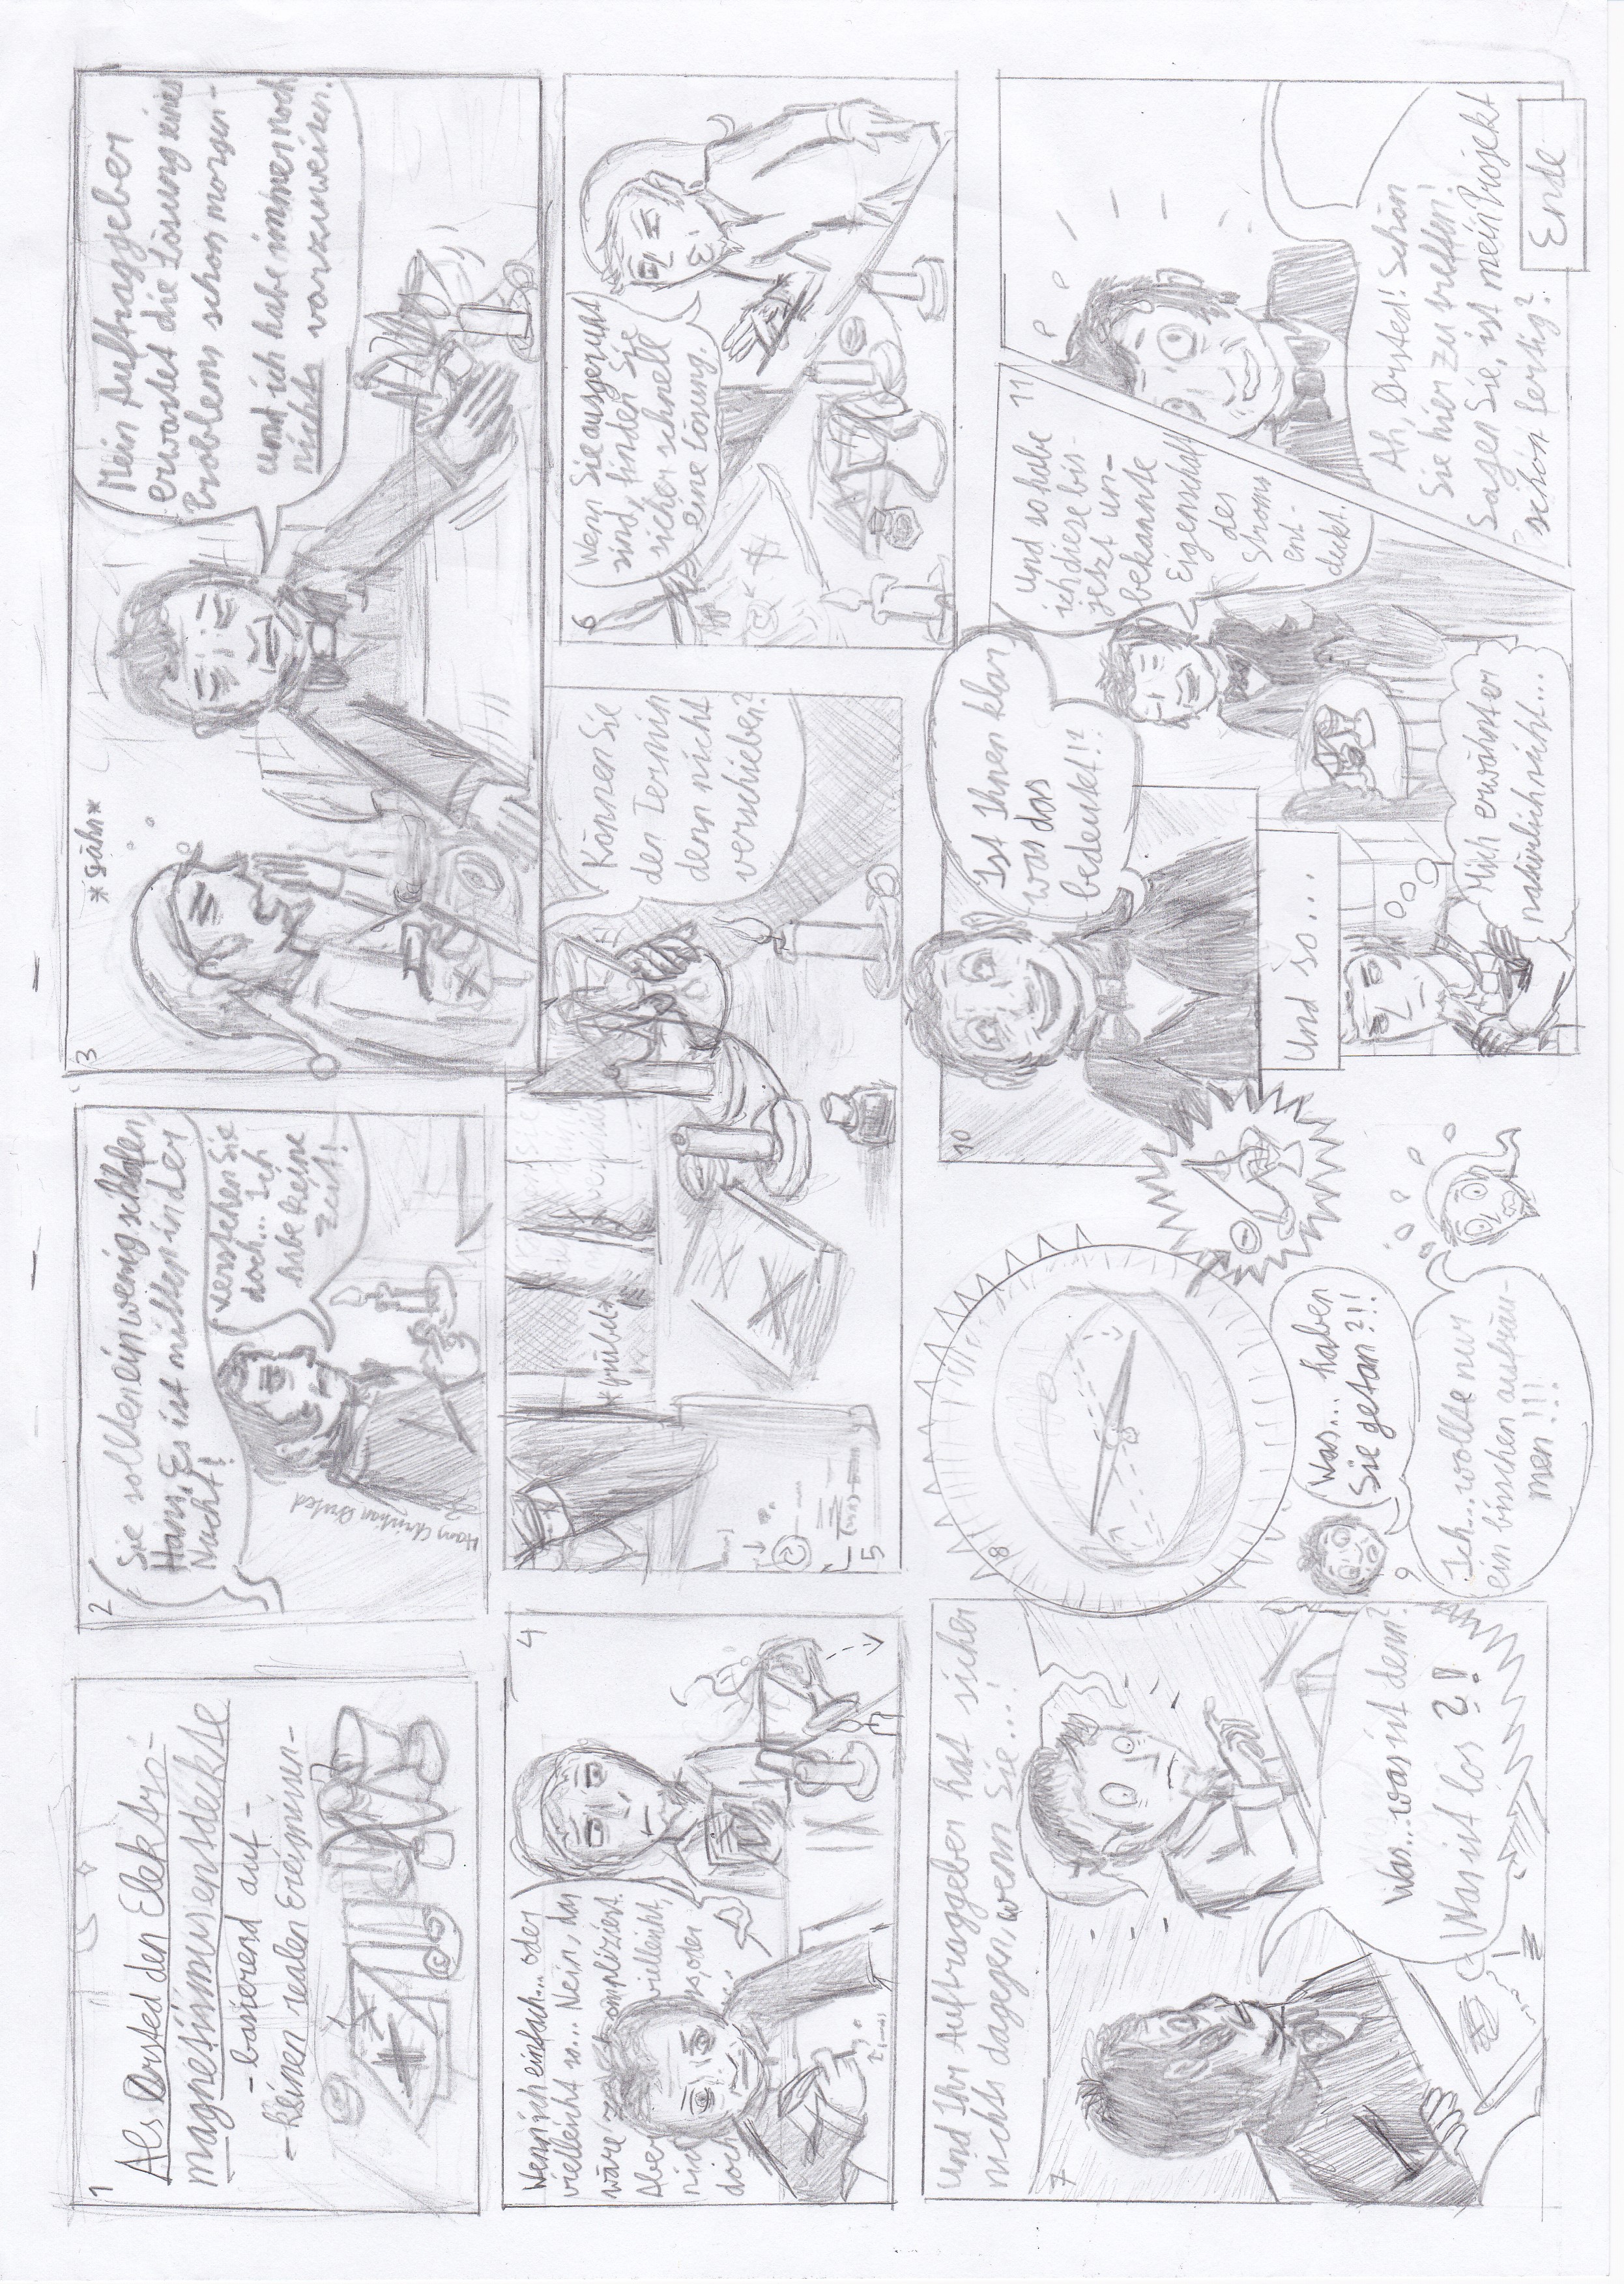 1
Als Ørsted den Elektro-
magnetismus entdeckte
- basierend auf -
- keinen realen Ereignissen -
2
Sie sollten ein wenig schlafen,
Hans. Es ist mitten in der
Nacht!
Verstehen Sie
doch... Ich
habe keine
Zeit!
Hans Christian Ørsted
3
*gähn*
Mein Auftraggeber
erwartet die Lösung seines
Problems schon morgen -
und ich habe immer noch
nichts vorzuweisen.
4
Wenn ich einfach... oder
vielleicht so... Nein, das
wäre z ompliziert.
Aber vielleicht,
nic s, oder
doch ...
5
*grübel*
Können Sie
den Termin
denn nicht
verschieben?
6
Wenn Sie ausgeruht
sind, finden Sie
sicher schnell
eine Lösung.
7
Und Ihr Auftraggeber hat sicher
nichts dagegen, wenn Sie...!
Was... was ist denn?
Was ist los?!
8
9
Was... haben
Sie getan?!!
Ich... wollte nur
ein bisschen aufräu-
men!!!
10
Ist Ihnen klar
was das
bedeutet!?
Und so...
11
Und so habe
ich diese bis-
jetzt un-
bekannte
Eigenschaft
des
Stroms
ent-
deckt.
Mich erwähnt er
natürlich nicht...
Ah, Ørsted! Schön
Sie hier zu treffen!
Sagen Sie, ist mein Projekt
schon fertig?
Ende